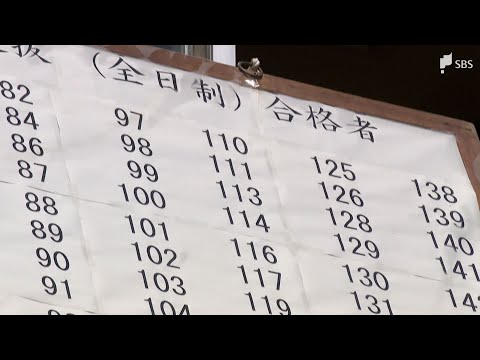 SBS
抜 (全日制) 合格者
82
84
86
87
88
89
90
91
97
98
99
100
101
102
103
104
110
111
113
114
116
117
119
125
126
128
129
130
131
138
139
140
141